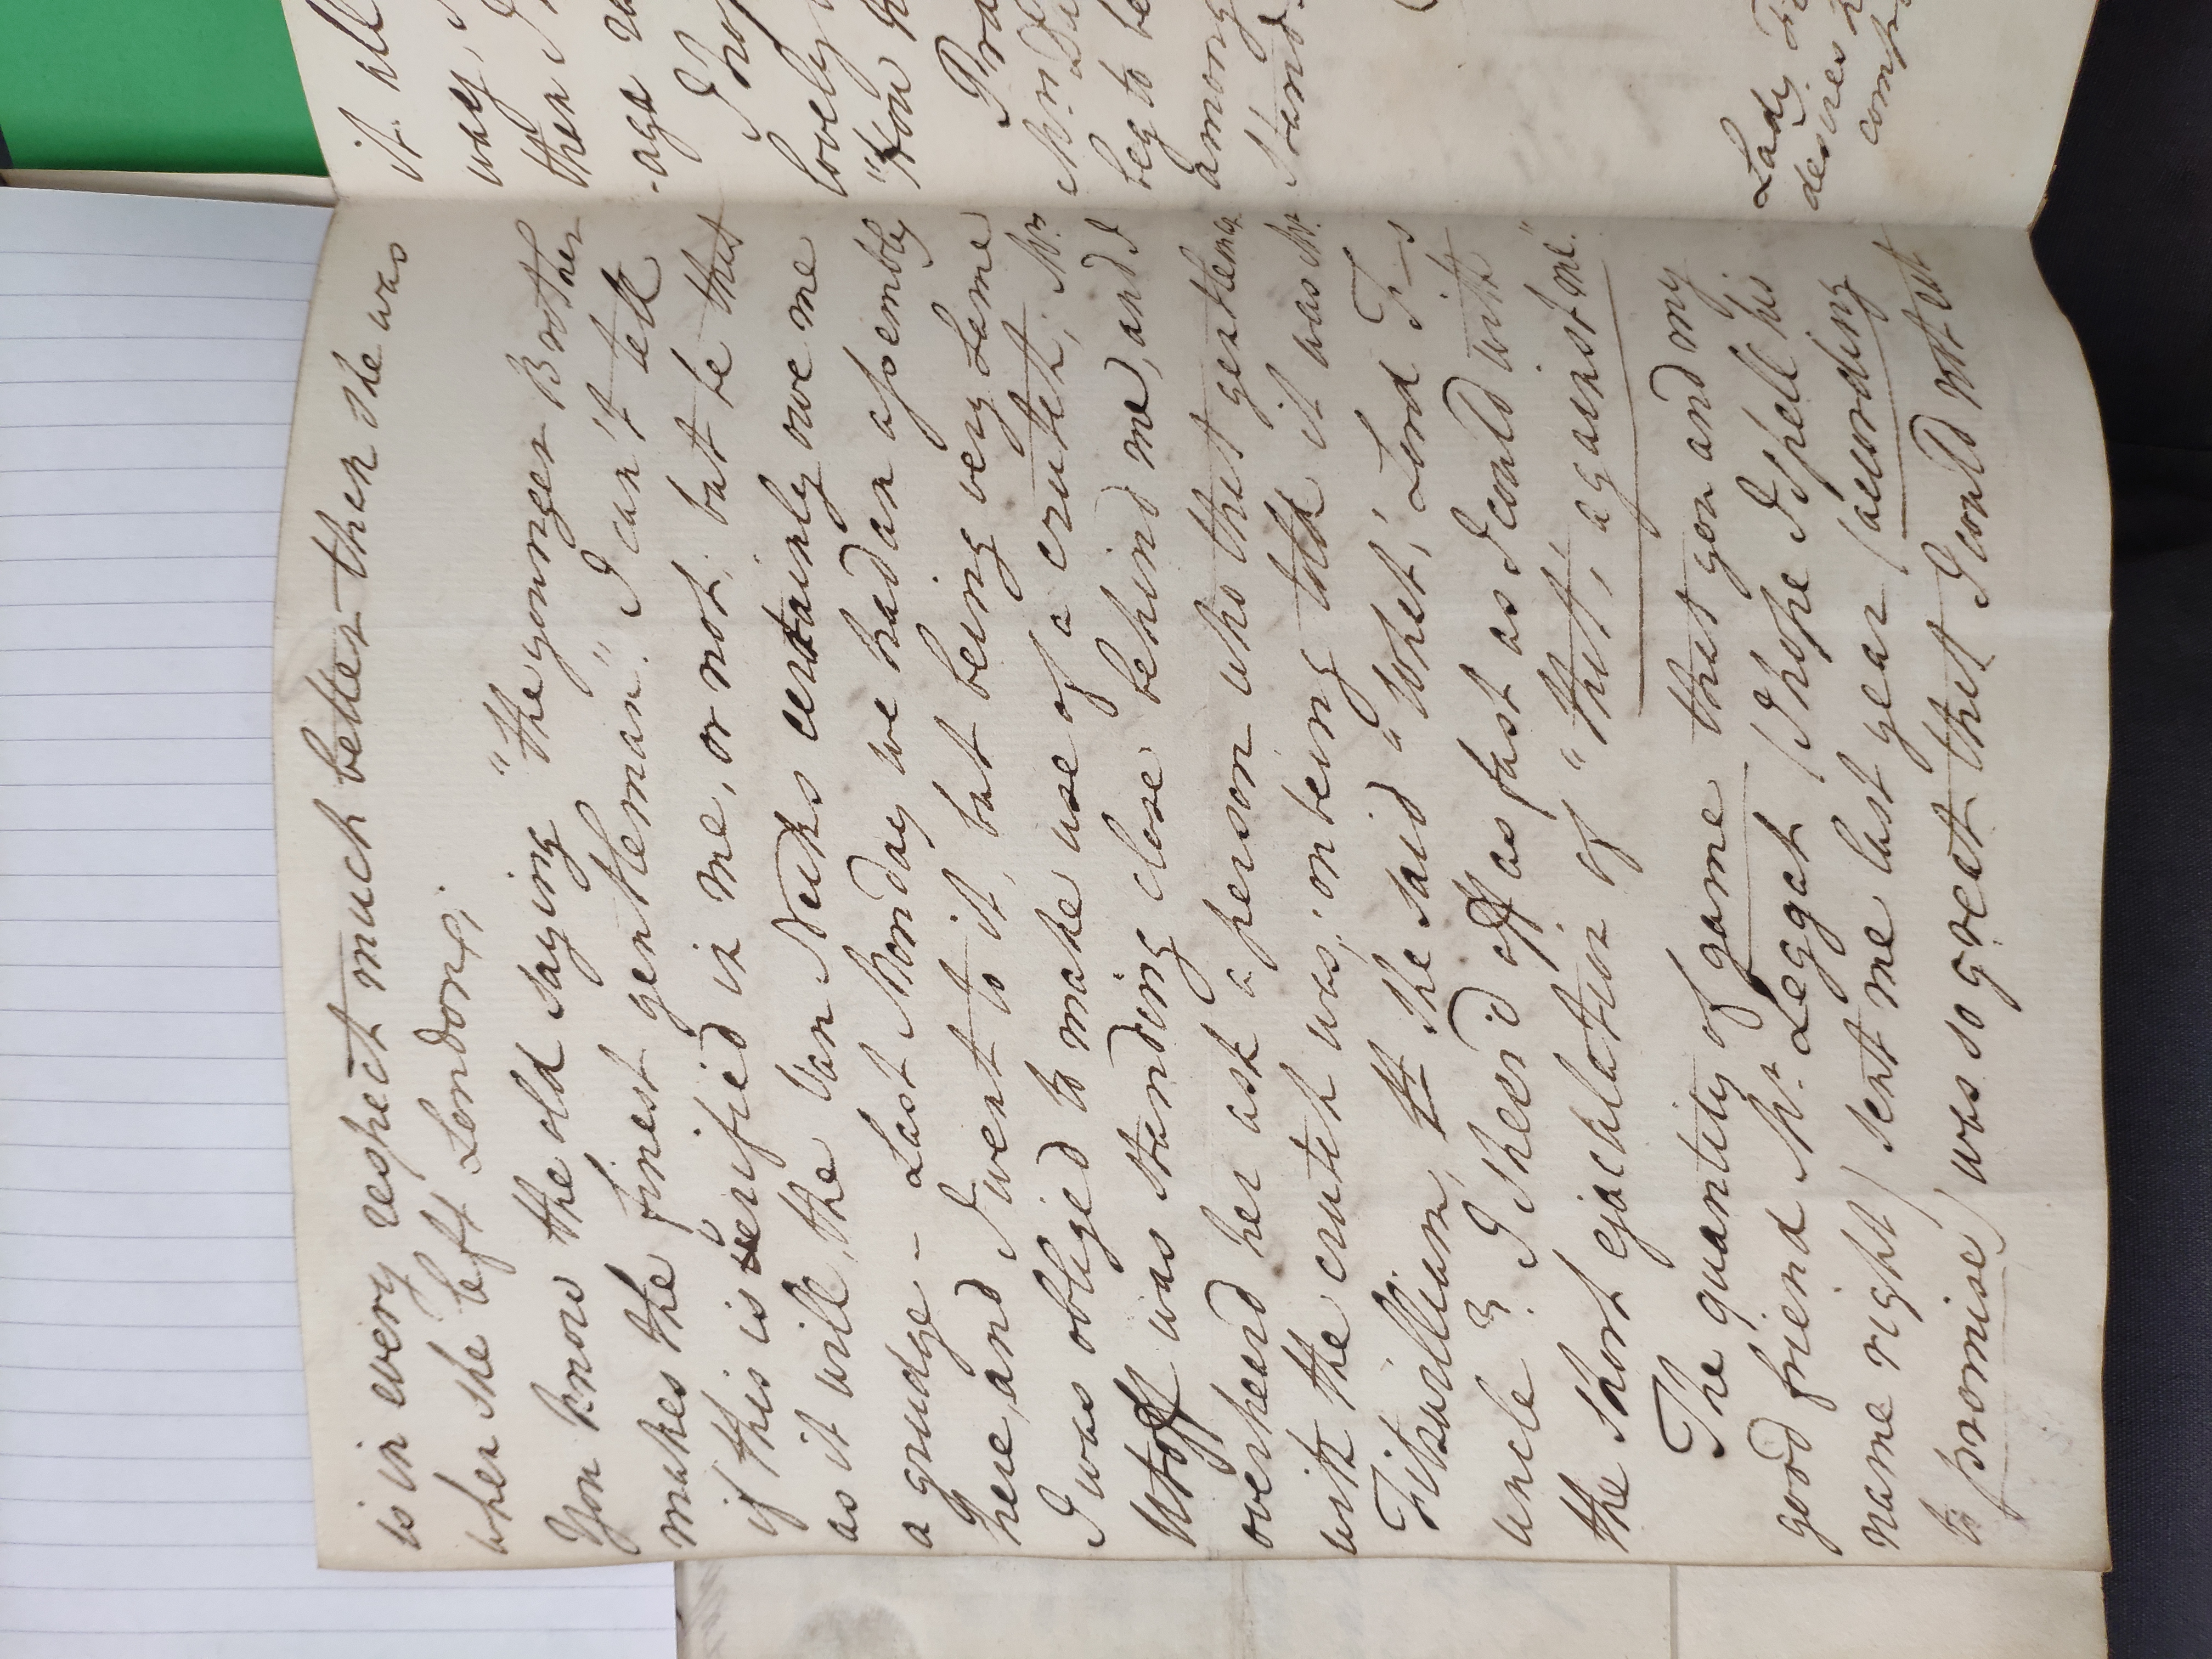 is in every respect much better then she was
when she left London;
You know the old saying "the younger Brother
makes the finest gentleman." I can't tell
if this is verified in me, or not; but be that
as it will, the Van Necks certainly owe me
a grudge – Last Monday we had an assembly
here, and I went to it, but being very Lame
I was obliged to make use of a crutch; Mrs
was standing close behind me, and I
overheard her ask a person who that gentleman
with the crutch was; on being told it was Mr.
Fitzwilliam, she said "What, Lord F—s
uncle"? I sheer'd off as fast as I could with
the short ejaculation of "that, against me".
The quantity of game that you and my
good friend Mr. Leggat (I hope I spell his
name right) sent me last year (according
to promise) was so great that I could not eat
it all
way, I
then I
-age
I hop
lovely
"How
Pra
Mrs
beg to be
among
stand
Lady Fi
desires
comp